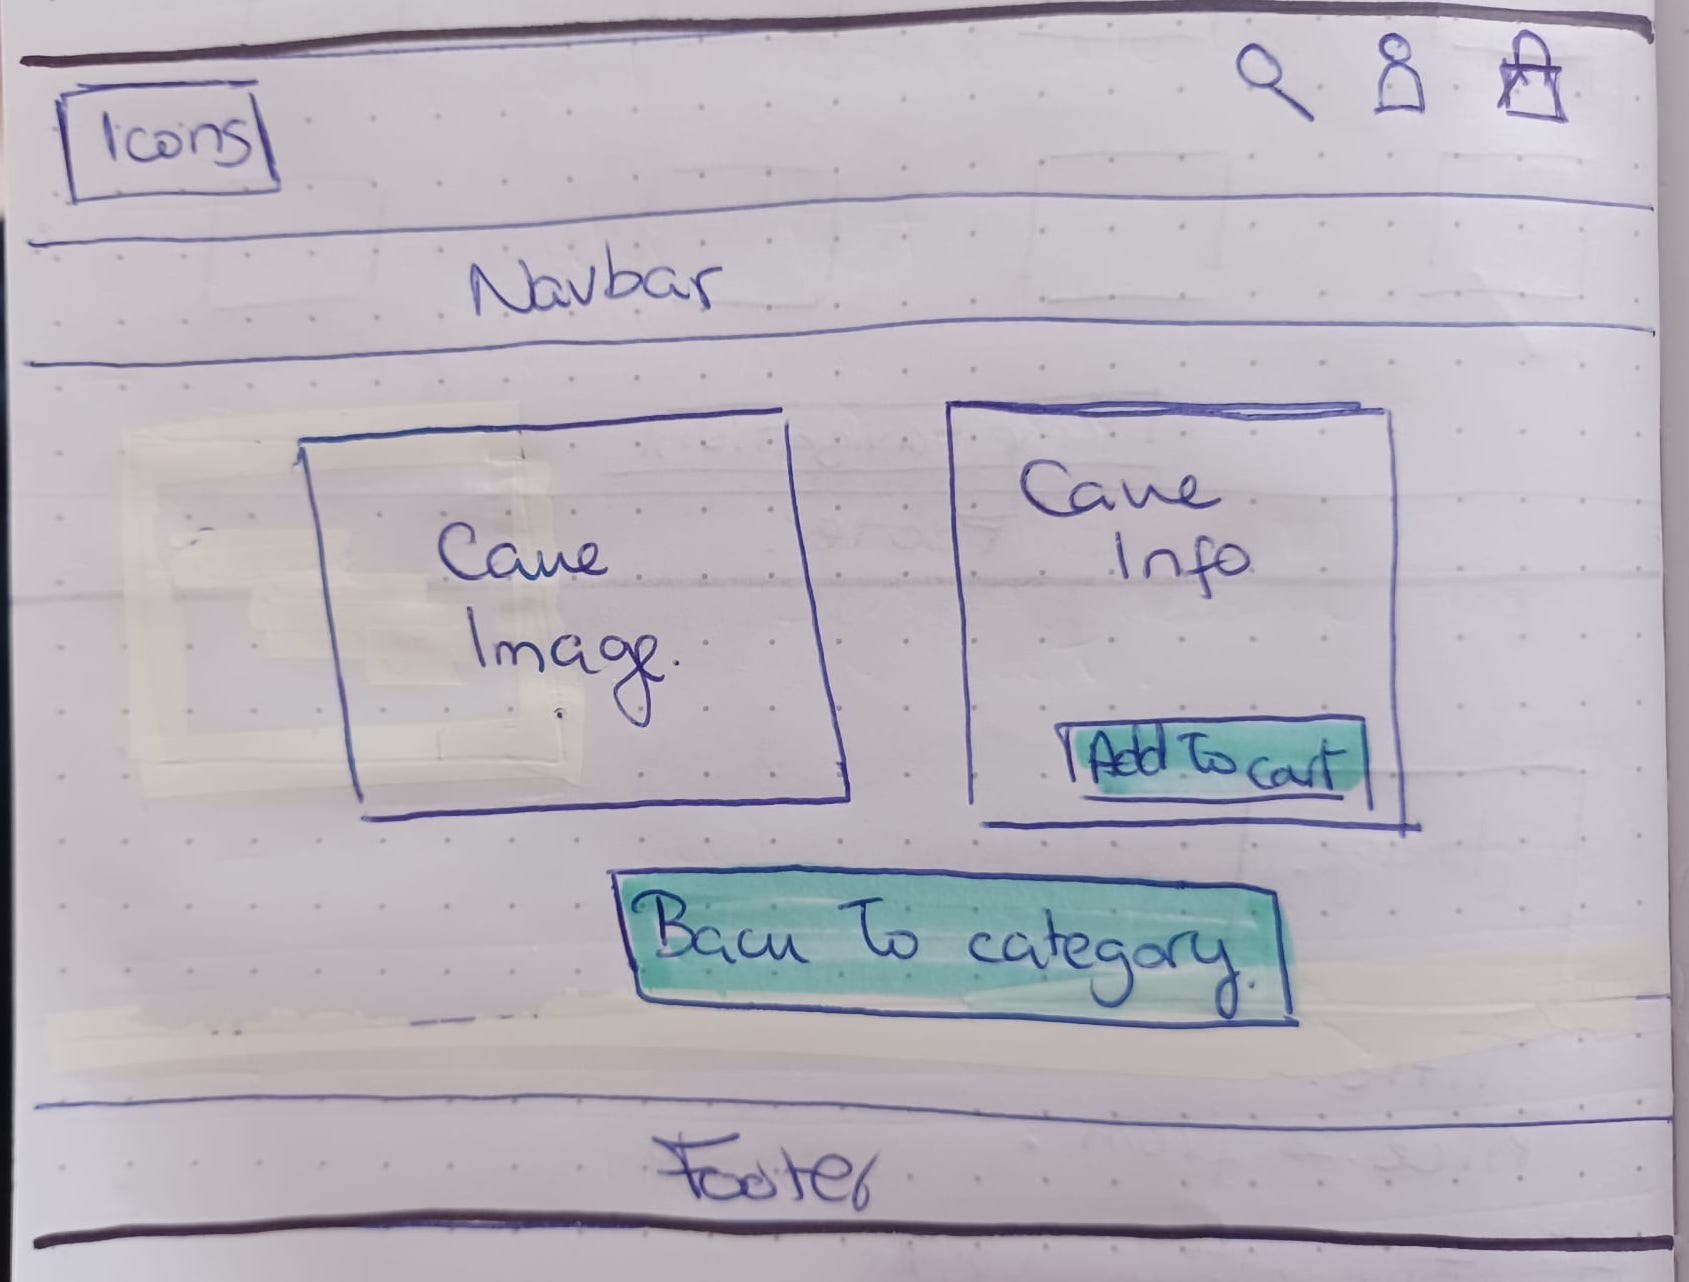 Icons
Navbar
Cake
Image.
Cake
Info
Add To cart
Back To category.
Footer